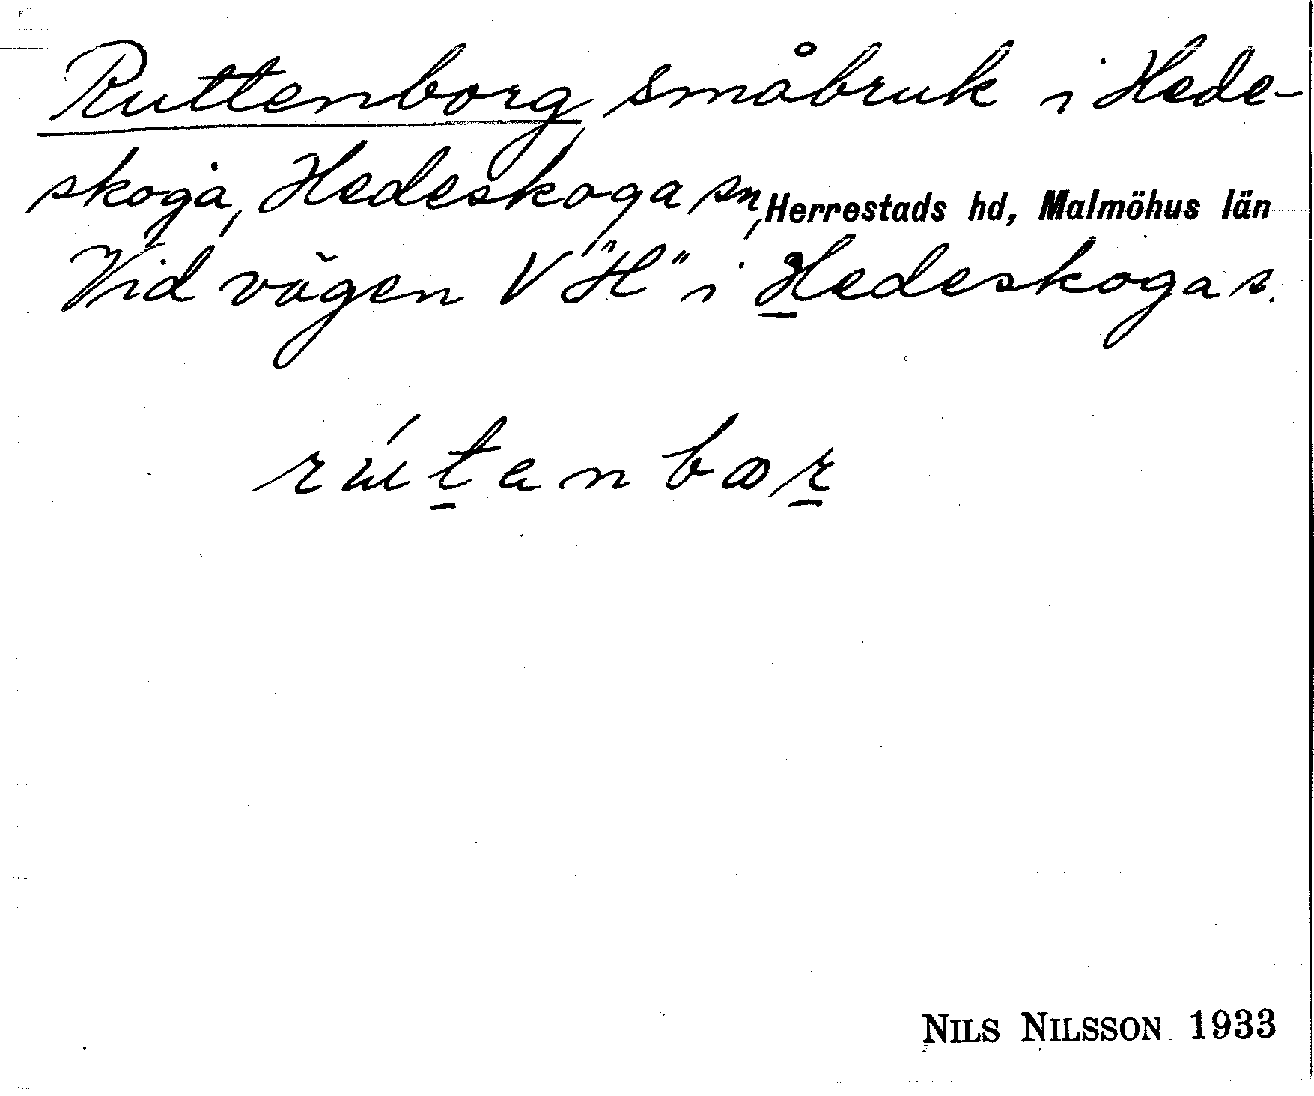 Ruttenborg småbruk i Hede-
skoga, Hedeskoga sn, Herrestads hd, Malmöhus län
Vid vägen V "H" i Hedeskoga s.
NILS NILSSON 1933